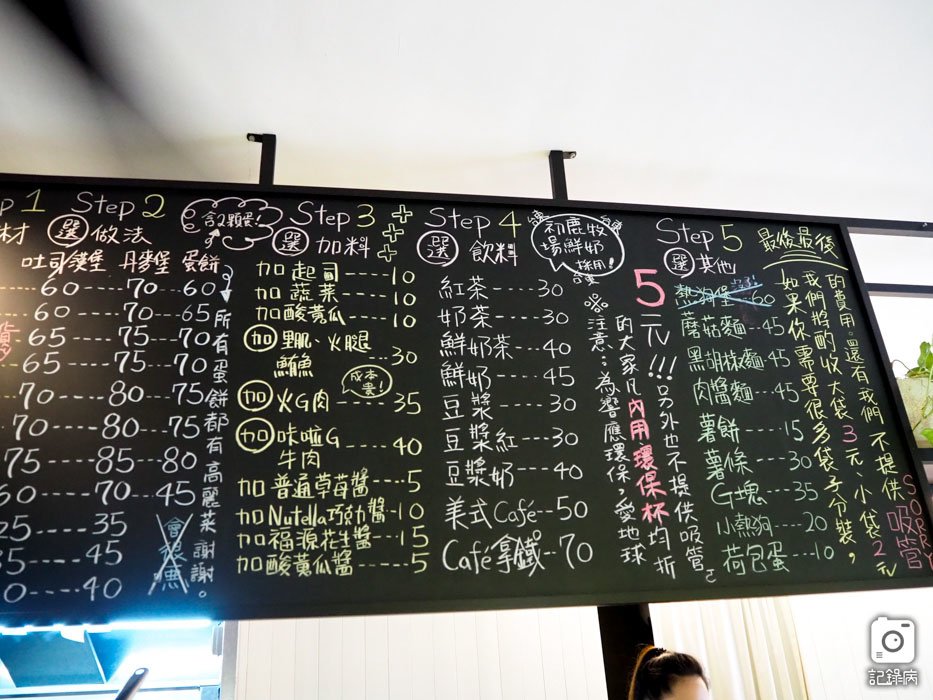 p 1
材
Step 2
選 做法
含2顆蛋!
吐司漢堡 丹麥堡 蛋餅
60----70---60
60----70---65
65----75---70
65----75---70
70----80---75
70----80---75
75----85---80
60----70---45
25----35
35----45
30----40
所有蛋餅都有高麗菜,謝謝。
Step 3
選 加料
加起司-----10
加蔬菜-----10
加酸黃瓜----10
加 火腿
鮪魚 ---30
成本貴!
加 火G肉 ----35
加 咔啦G
牛肉 ---40
加普通草莓醬---5
加Nutella巧克力醬-10
加福源花生醬---15
加酸黃瓜醬-----5
Step 4
選 飲料
初鹿牧場鮮奶
採用!
紅茶----30
奶茶----30
鮮奶茶---40
鮮奶----45
豆漿----30
豆漿紅---30
豆漿奶---40
美式Café--50
Café拿鐵--70
※注意:為響應環保,愛地球
的大家凡內用環保杯均折
5元!!!另外也不提供吸管
Step 5
選 其他
熱狗堡 60
蘑菇麵--45
黑胡椒麵-45
肉醬麵--45
薯餅----15
薯條----30
G塊----35
小熱狗---20
荷包蛋---10
最後最後
如果你需要很多袋子分裝,
我們將酌收大袋3元、小袋2元
的費用。還有我們不提供吸管
SORRY
記錄病